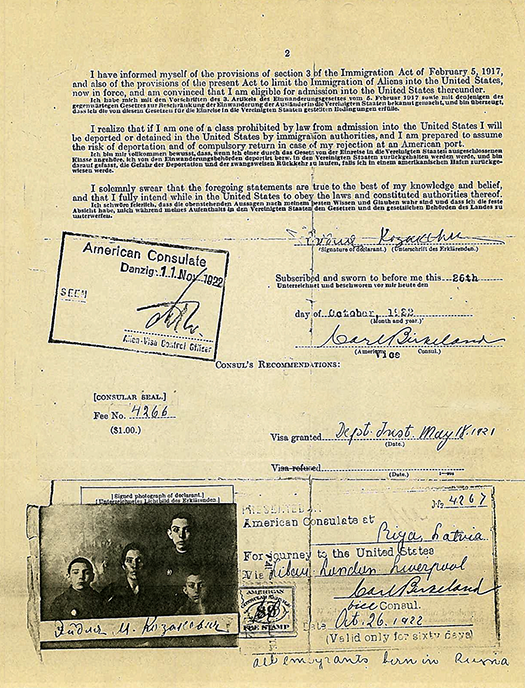 2
I have informed myself of the provisions of section 3 of the Immigration Act of February 5, 1917,
and also of the provisions of the present Act to limit the Immigration of Aliens into the United States,
now in force, and am convinced that I am eligible for admission into the United States thereunder.
Ich habe mich mit den Vorschriften des 3. Artikels des Einwanderungsgesetzes vom 5. Februar 1917 sowie mit denjenigen des
gegenwärtigen Gesetzes zur Beschränkung der Einwanderung der Ausländer in die Vereinigten Staaten bekannt gemacht, und bin überzeugt,
dass ich die von diesem Gesetz für die Einreise in die Vereinigten Staaten gestellten Bedingungen erfülle.
I realize that if I am one of a class prohibited by law from admission into the United States I will
be deported or detained in the United States by immigration authorities, and I am prepared to assume
the risk of deportation and of compulsory return in case of my rejection at an American port.
Ich bin mir vollkommen bewusst, dass, wenn ich einer durch das Gesetz von der Einreise in die Vereinigten Staaten ausgeschlossenen
Klasse angehöre, ich von den Einwanderungsbehörden deportiert bezw. in den Vereinigten Staaten zurückgehalten werden werde, und bin
darauf gefasst, die Gefahr der Deportation und der zwangsweisen Rückkehr zu laufen, falls ich in einem amerikanischen Hafen zurückge-
wiesen werde.
I solemnly swear that the foregoing statements are true to the best of my knowledge and belief,
and that I fully intend while in the United States to obey the laws and constituted authorities thereof.
Ich schwöre feierlich, dass die obenstehenden Aussagen nach meinem besten Wissen und Glauben wahr sind und dass ich die feste
Absicht habe, mich während meines Aufenthalts in den Vereinigten Staaten den Gesetzen und den gesetzlichen Behörden des Landes zu
unterwerfen.
(Signature of declarant.) (Unterschrift des Erklärenden.)
American Consulate
Danzig 11 Nov 1922
SEEN
Alien-Visa Control Officer
Subscribed and sworn to before me this 26th
Unterzeichnet und beschworen vor mir heute den
day of October, 1922
(Month and year.)
Carl Birkeland
(American Vice Consul.)
CONSUL'S RECOMMENDATIONS:
[CONSULAR SEAL.]
Fee No. 4266
($1.00.)
Visa granted Dept. Inst. May 18, 1921
(Date.)
Visa refused
(Date.)
[Signed photograph of declarant.]
[Unterzeichnetes Lichtbild des Erklärenden.]
No 4267
PRESENTED
American Consulate at
Riga, Latvia
For journey to the United States
Via Libau London Liverpool
Carl Birkeland
vice Consul.
Date Oct. 26, 1922
(Valid only for sixty days)
AMERICAN
FEE STAMP
Эйдля И. Казакевич
all emigrants born in Russia